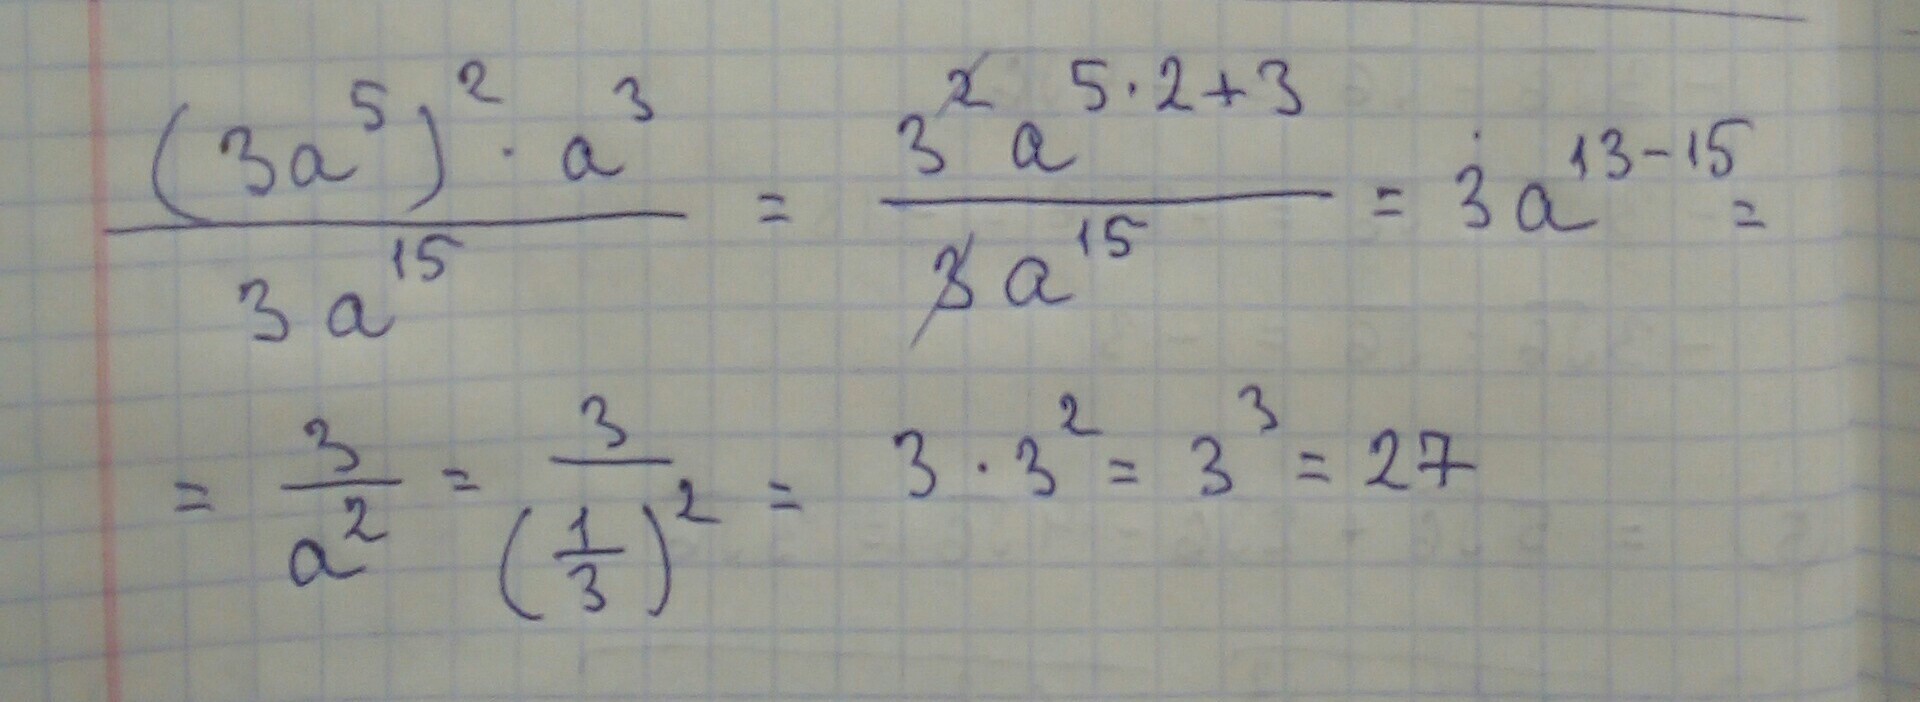 (3a⁵)² · a³ / 3a¹⁵ = 3² a^(5·2+3) / 3a¹⁵ = 3a^(13-15) =
= 3 / a² = 3 / (1/3)² = 3 · 3² = 3³ = 27